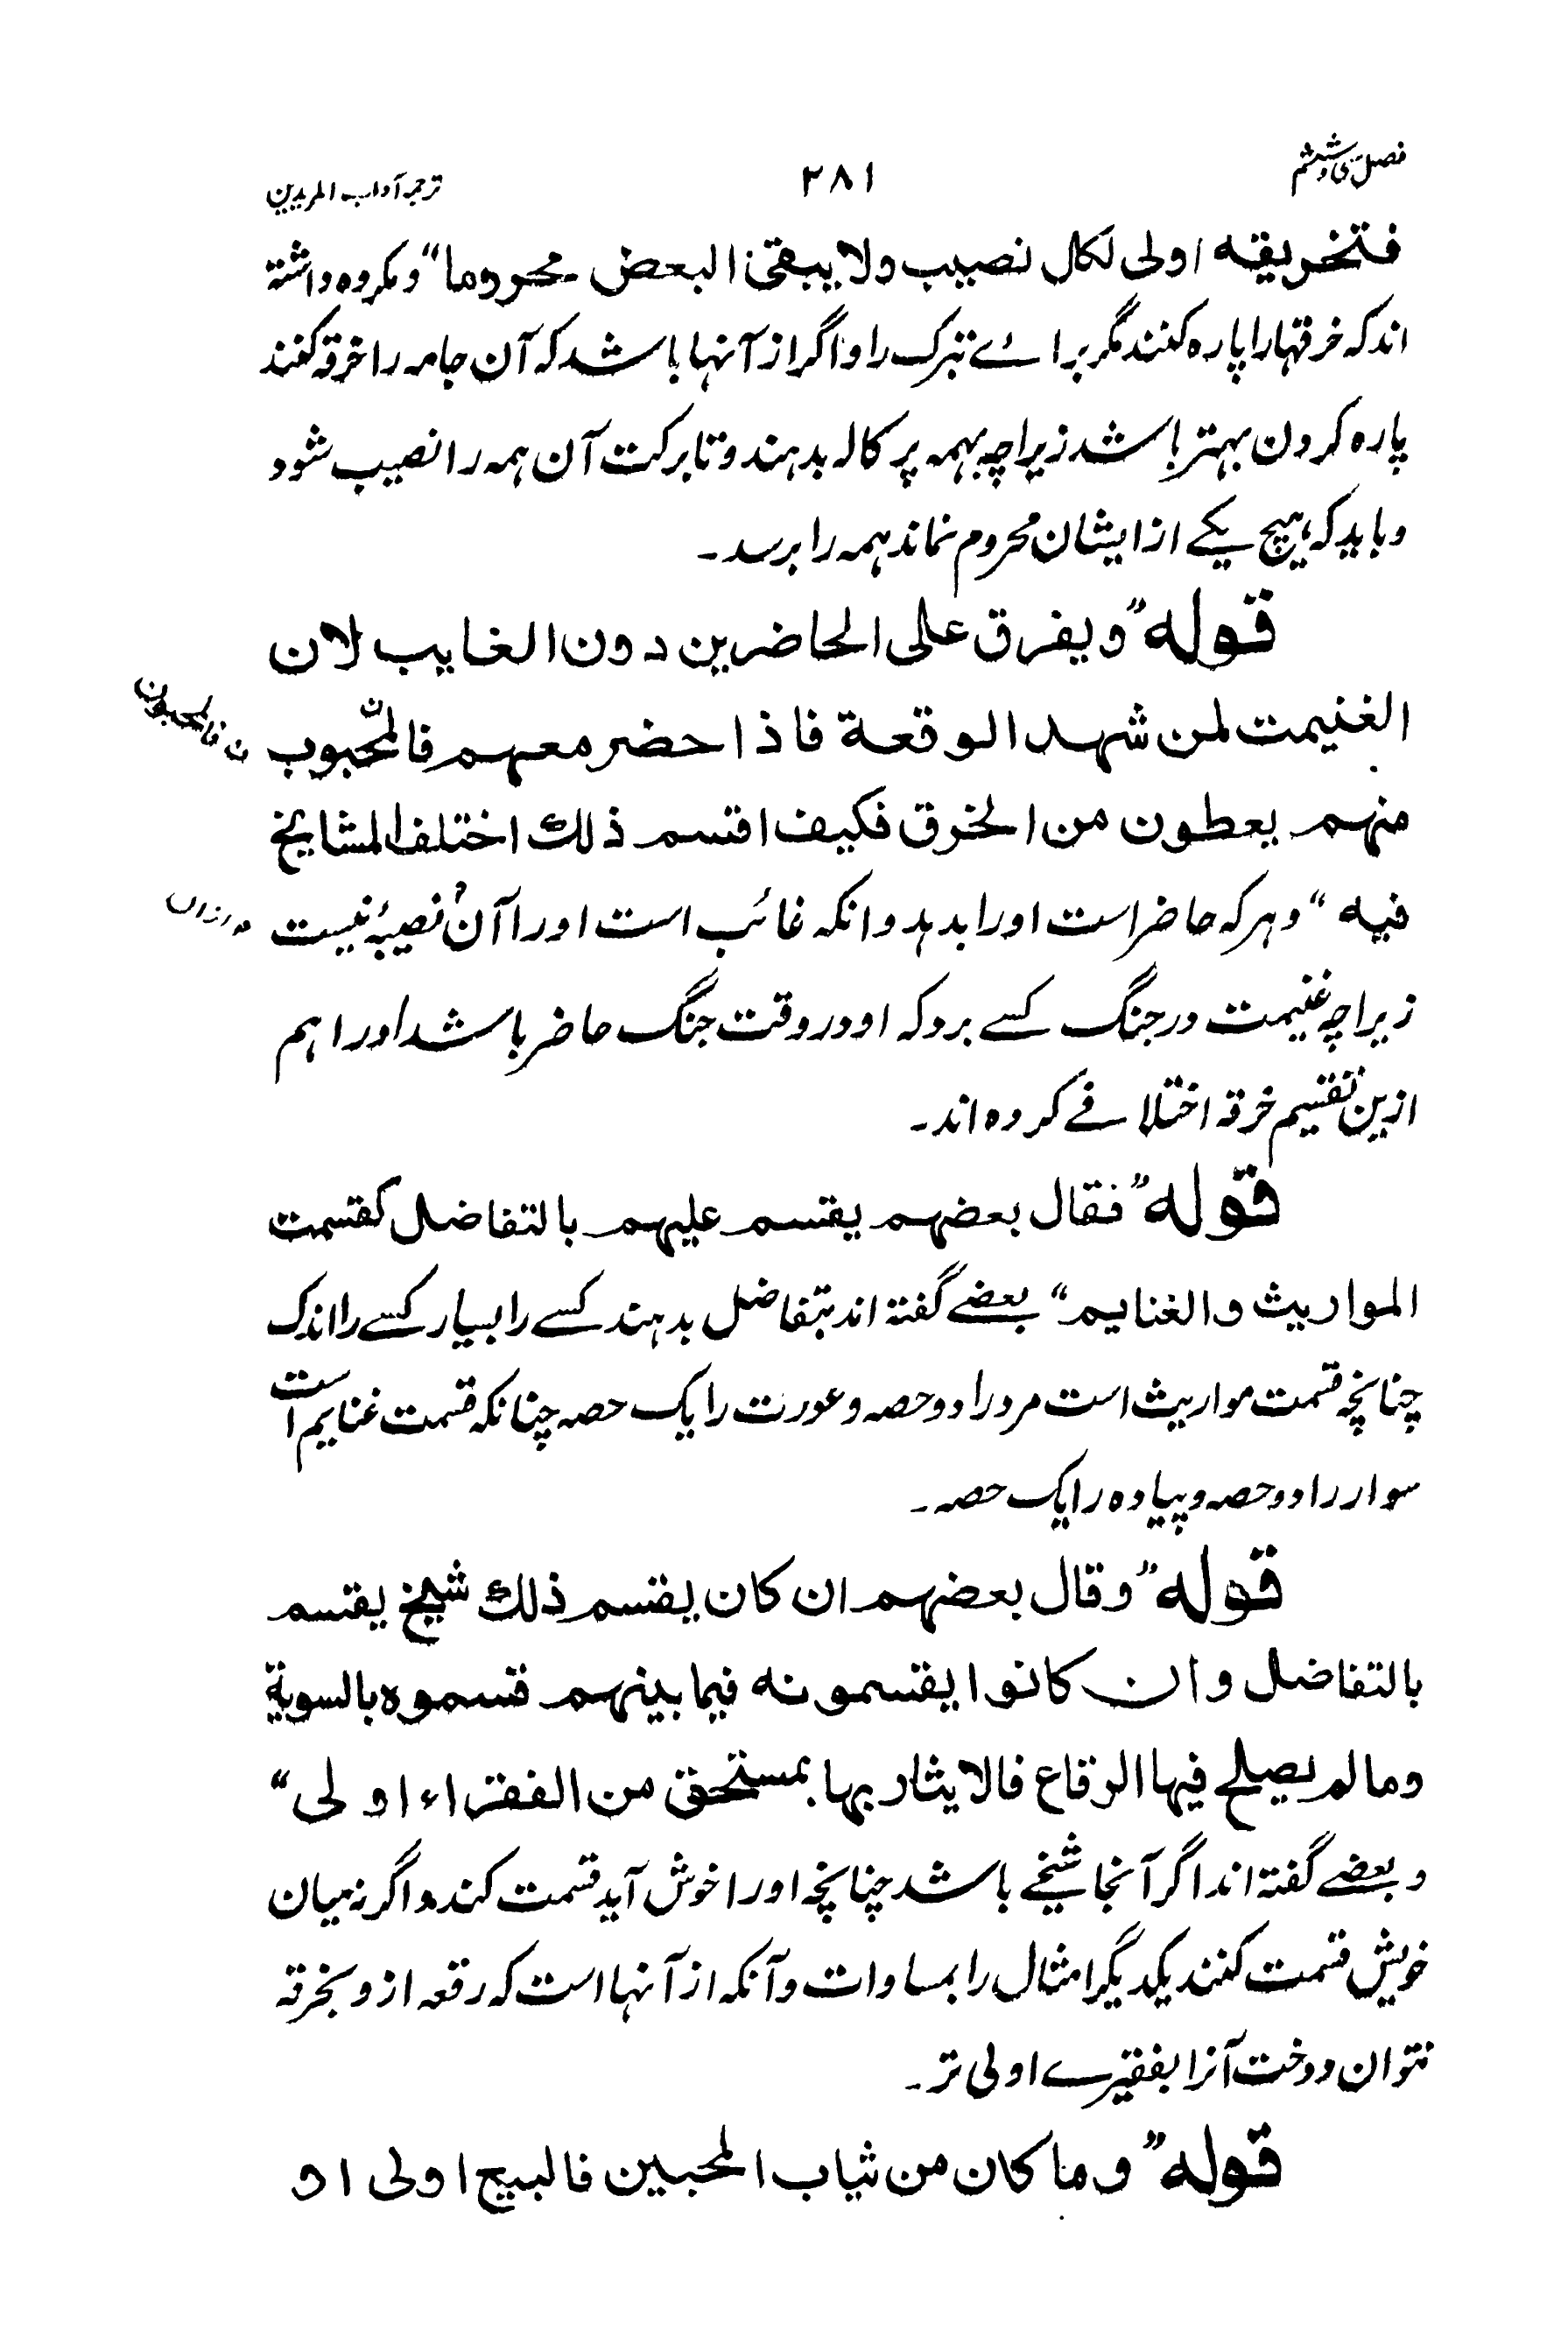 فصل سی و ششم
۲۸۱
ترجمہ آداب المریدین
فتخریقه اولی لکل نصیب ولا یبقی البعض محروما" ومکروه داشتہ
اند کہ خرقہا را پاره کنند مگر براے تبرک را و اگر از آنہا باشد کہ آن جامہ را خرقہ کنند
پاره کردن بہتر باشد زیراچہ بہمہ پرکالہ بدہند و تا برکت آن ہمہ را نصیب شود
و باید کہ ہیچ یکے از ایشان محروم نماند ہمہ را برسد۔
قوله "ویفرق علی الحاضرین دون الغایب لان
الغنیمت لمن شهد الوقعة فاذا حضر معهم فالمحبوب
ن فالمحبون
منهم یعطون من الخرق فکیف اقتسم ذلك اختلف المشایخ
فیه" و ہر کہ حاضر است او را بدہد و انکہ غائب است او را آن نصیبۂ نیست
ن ازان
زیراچہ غنیمت در جنگ کسے برد کہ او در وقت جنگ حاضر باشد او را ہم
ازین تقسیم خرقہ اختلافے کرده اند۔
قوله "فقال بعضهم یقتسم علیهم بالتفاضل کقسمت
المواریث والغنایم" بعضے گفتہ اند بتفاضل بدہند کسے را بسیار کسے را اندک
چنانچہ قسمت مواریث است مرد را دو حصہ و عورت را یک حصہ چنانکہ قسمت غنایم است
سوار را دو حصہ و پیاده را یک حصہ۔
قوله "وقال بعضهم ان کان یقتسم ذلك شیخ یقتسم
بالتفاضل وان کانوا یقتسمونه فیما بینهم قسموه بالسویة
وما لم یصلح فیها الرقاع فالایثار بها بمستحق من الفقراء اولی"
و بعضے گفتہ اند اگر آنجا شیخے باشد چنانچہ او را خوش آید قسمت کند و اگر نہ میان
خویش قسمت کنند یکدیگر امثال را بمساوات و آنکہ از آنہا است کہ رقعہ ازو بخرقہ
نتوان دوخت آنرا بفقیرے اولی تر۔
قوله "وما کان من ثیاب المحبین فالبیع اولی او